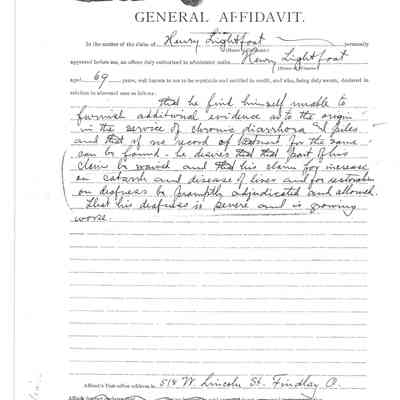 GENERAL AFFIDAVIT.
In the matter of the claim of Henry Lightfoot
personally
appeared before me, an officer duly authorized to administer oaths Henry Lightfoot
aged 69 years, well known to me to be reputable and entitled to credit, and who, being duly sworn, declared in
relation to aforesaid case as follows:
that he find himself unable to
furnish additional evidence as to the origin
in the service of chronic diarrhoea & piles
and that if no record of treatment for the same
can be found. he desires that that part of his
claim be waived and that his claim for increase
on catarrh and disease of liver and for restoration
on deafness be promptly adjudicated and allowed.
that his deafness is severe and is growing
worse.
Affiant's Post-office address is 518 W Lincoln St. Findlay O.